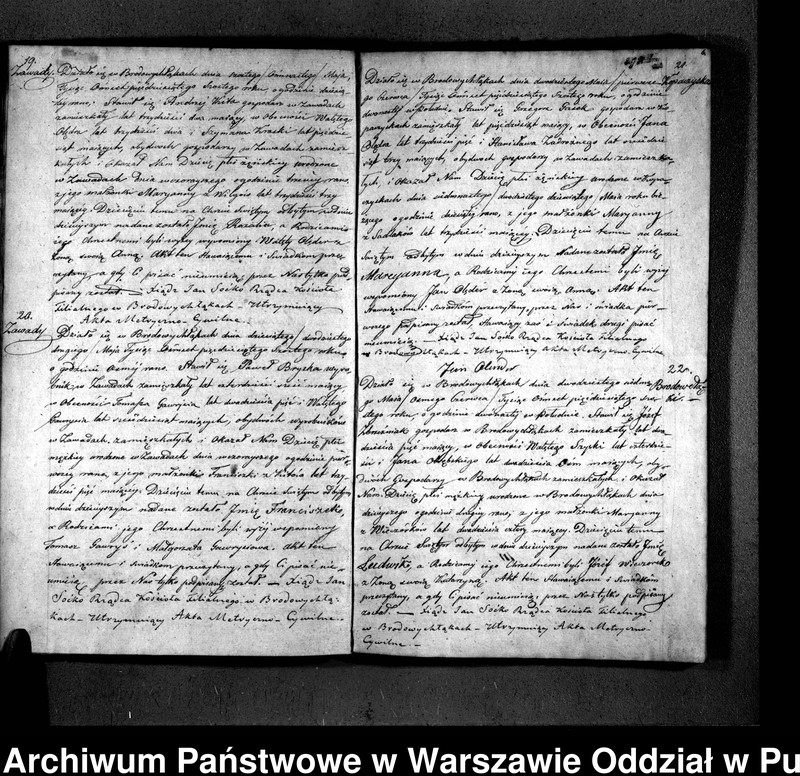 19.
Zawady.
Działo się w Brodowychłąkach dnia szóstego/ósmnastego/Maja,
Tysiąc Ośmset pięćdziesiątego Szóstego roku, o godzinie dziesią-
tej rano, Stawił się Andrzej gospodarz w Zawadach
zamieszkały lat trzydzieści dwa mający, w Obecności Walętego
Olęder lat trzydzieści dwa i Szymona lat pięćdzie-
siąt mających, obydwóch gospodarzy w Zawadach zamiesz-
kałych i Okazał Nam Dziecię płci żęńskiej urodzone
w Zawadach Dnia wczorayszego o godzinie trzeciej rano,
z jego małżonki Maryanny z lat trzydzieści trzy
mającej. Dziecięciu temu na Chrzcie świętym odbytym w dniu
dzisiejszym nadane zostało Jmię Rozalia, a Rodzicami
jego Chrzestnemi byli wyżej wspomniony Walęty Olęder z
Żoną swoią Anną. Akt ten Stawaiącemu i Świadkom prze-
czytany, a gdy Ci pisać nieumieią, przez Nas tylko pod-
pisany został. — Xiądz Jan Sośko Rządca Kościoła
Filialnego w Brodowychłąkach – Utrzymuiący
Akta Metryczno Cywilne.
20.
Zawady
Działo się w Brodowychłąkach dnia dziesiątego/dwudziestego
drugiego/Maja Tysiąc Ośmset pięćdziesiątego Szóstego roku,
o godzinie Osmej rano. Stawił się Paweł Bryska wyro-
bnik w Zawadach zamieszkały lat czterdzieści sześć mający
w Obecności Tomasza Gawrysia lat dwadzieścia pięć i Walętego
lat sześćdziesiąt mających, obydwóch wyrobników
w Zawadach, zamieszkałych i Okazał Nam Dziecię płci
męzkiej urodzone w Zawadach dnia wczorayszego o godzinie pier-
wszej rano, z jego małżonki Franciszki z lat trzy-
dzieści pięć mającej. Dziecięciu temu na Chrzcie świętym odbytym
w dniu dzisiejszym nadane zostało Jmię Franciszek,
a Rodzicami jego Chrzestnemi byli wyżej wspomniony
Tomasz Gawryś i Małgorzata Gawrysiowa. Akt ten
Stawaiącemu i Świadkom przeczytany, a gdy Ci pisać nie-
umieią, przez Nas tylko podpisany został. — Xiądz Jan
Sośko Rządca Kościoła Filialnego w Brodowychłą-
kach – Utrzymuiący Akta Metryczno – Cywilne. –
21.
Działo się w Brodowychłąkach dnia dwudziestego Maja/pierwsze-
go Czerwca/Tysiąc Ośmset pięćdziesiątego Szóstego roku, o godzinie
dwunastej w południe. Stawił się Grzegorz gospodarz w
zamieszkały, lat pięćdziesiąt mający, w Obecności Jana
Olęder lat trzydzieści pięć i Stanisława lat
trzy mających, obydwóch gospodarzy w Zawadach zamieszka-
łych, i Okazał Nam Dziecię płci żęńskiej urodzone w
dnia dziewiętnastego Maja roku bie-
żącego o godzinie dziesiątej rano, z jego małżonki Maryanny
z lat trzydzieści mającej. Dziecięciu temu na Chrzcie
Świętym odbytym w dniu dzisiejszym Nadane zostało Jmię
Maryanna, a Rodzicami jego Chrzestnemi byli wyżej
wspomniony Jan Olęder z Żoną swoią Anną. Akt ten
Stawaiącemu i Świadkom przeczytany, przez Nas i świadka pier-
wszego podpisany został, Stawaiący zaś i świadek drugi pisać
nieumieią. Xiądz Jan Sośko Rządca Kościoła Filialnego
w Brodowychłąkach – Utrzymuiący Akta Metryczno Cywilne.
Jan
22.
Działo się w Brodowychłąkach dnia dwudziestego siódme-
go Maja/Osmego Czerwca, Tysiąc Ośmset pięćdziesiątego Szós-
tego roku, o godzinie dwunastej w południe. Stawił się Józef
gospodarz w Brodowychłąkach zamieszkały, lat dwa-
dzieścia pięć mający, w obecności Walętego lat czterdzie-
ści i Jana lat dwadzieścia Ośm mających, oby-
dwóch Gospodarzy w Brodowychłąkach zamieszkałych i Okazał
Nam Dziecię płci męzkiej urodzone w Brodowychłąkach dnia
dzisiejszego o godzinie drugiej rano, z jego małżonki Maryanny
z Wieczorków lat dwadzieścia cztery mającej. Dziecięciu temu
na Chrzcie Świętym odbytym w dniu dzisiejszym nadane zostało Jmię
Ludwik, a Rodzicami jego Chrzestnemi byli Józef Wieczorek
z Żoną swoią Katarzyną. Akt ten Stawaiącemu i Świadkom
przeczytany, a gdy Ci pisać nieumieią, przez Nas tylko podpisany
został. — Xiądz Jan Sośko Rządca Kościoła Filialnego
w Brodowychłąkach – Utrzymuiący Akta Metryczno
Cywilne. –
Archiwum Państwowe w Warszawie Oddział w Pu